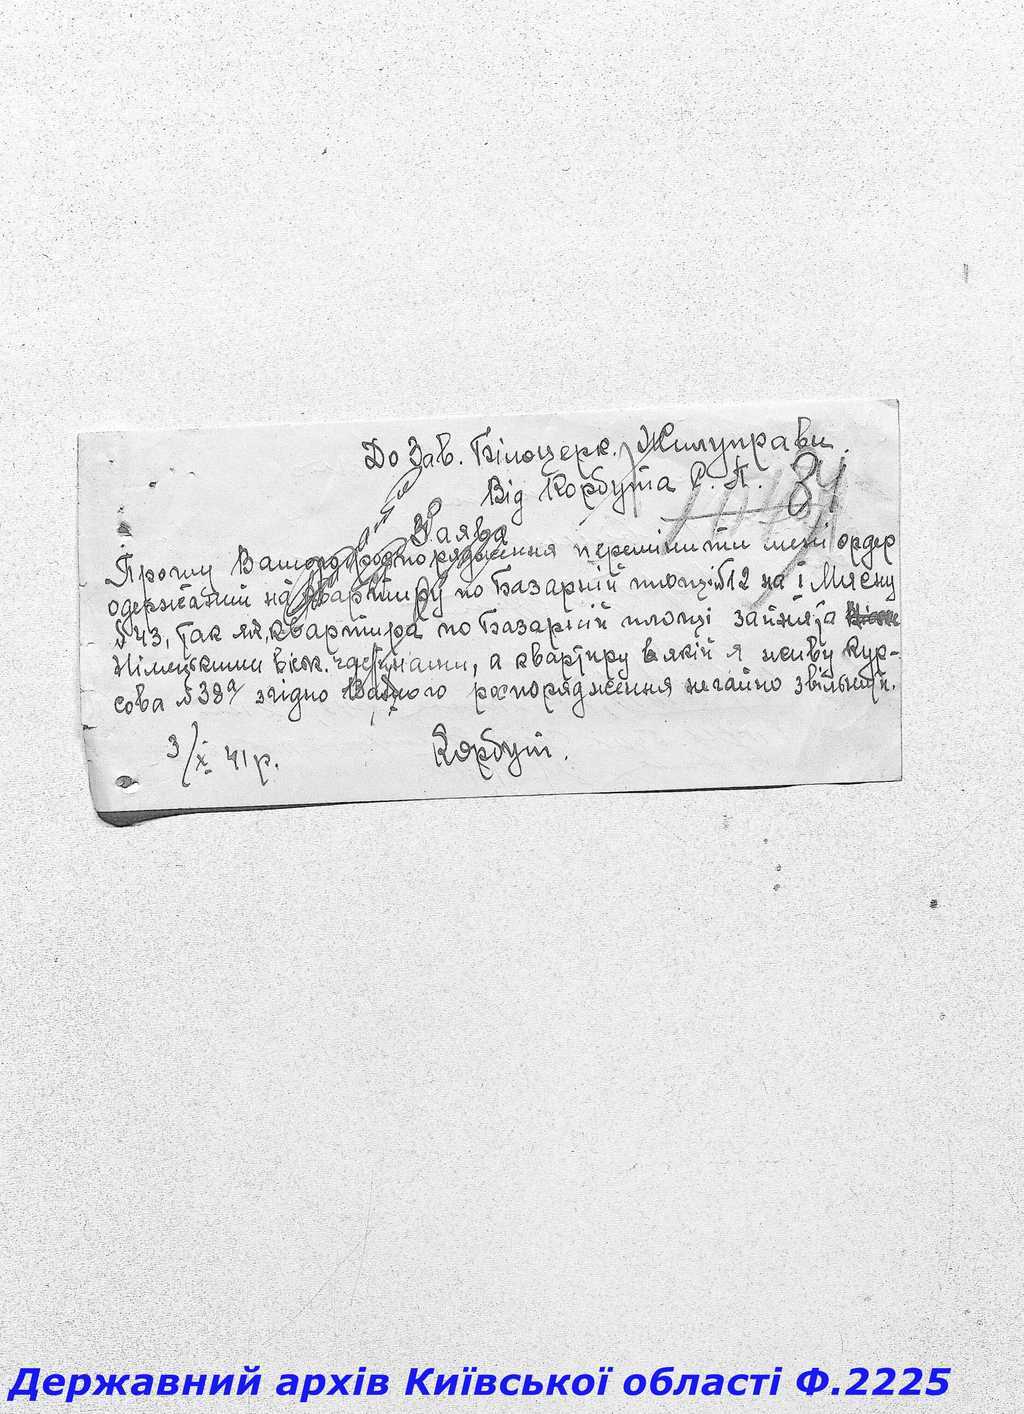 До Зав. Білоцерк. Жилуправи.
Від Корбута С. П. 84
Заява
Прошу Вашого розпорядження перемінити мені ордер
одержаний на квартиру по Базарній площі №12 на І М'ясну
№43, так як квартира по Базарній площі зайнята
Німецькими війск. частинами, а квартиру в якій я живу Кур-
сова №38а згідно Вашого розпорядження негайно звільнити.
3/X 41 р. Корбут.
Державний архів Київської області Ф.2225